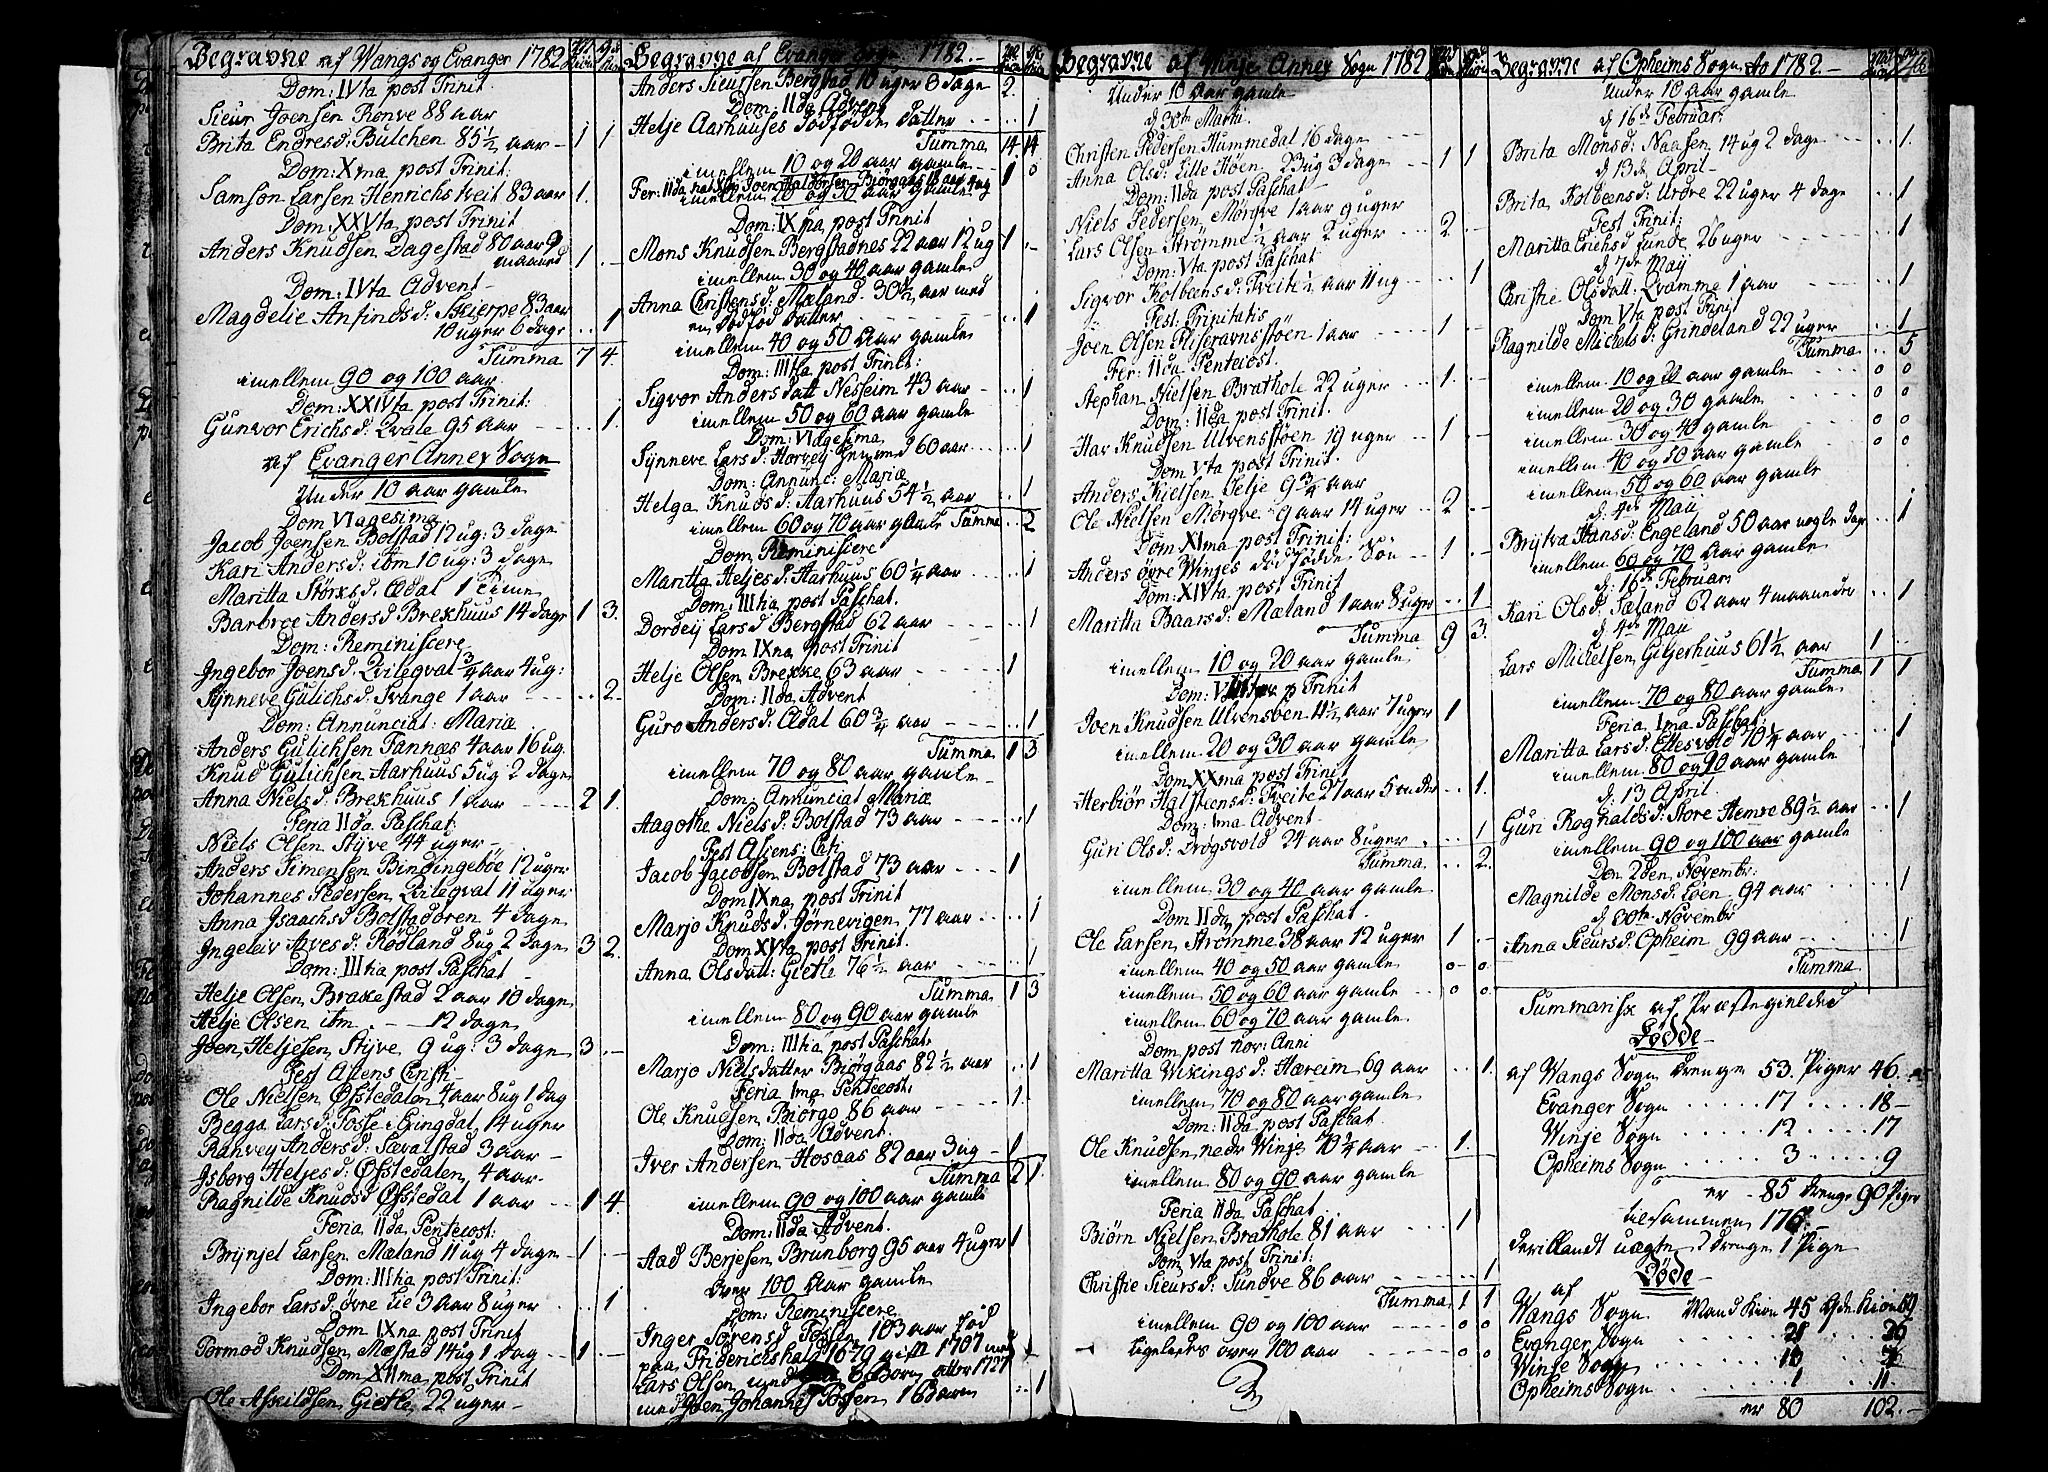 Begravne af Wangs og Evanger 1782
Dom: IVta post Trinit
Siur Joensen Rønve 88 aar
Brita Endresd: Bulchen 85 1/2 aar - 1 1
Dom: Xma post Trinit:
Samson Larsen Henrichstveit 83 aar 1.
Dom: XXVta post Trinit
Anders Knudsen Dagestad 80 aar 9
maaned 1 . -
Dom: IVta Advent -
Magdelie Anfindsd: Skierpe 83 aar
10 uger 6 dage .. 1
Summa 7 4.
imellem 90 og 100 aar.
Dom: XXIVta post Trinit:
Gunvor Erichsd: Qvale 95 aar - .. 1.
af Evanger Annex Sogn
Under 10 aar gamle
Dom VIagesima
Jacob Joensen Bolstad 12 ug: 3 dage
Kari Andersd: ibm 10 ug: 3 dage
Maritta Størksd: Ædal 1 Time
Barbroe Andersd Brekhuus 14 dage 1 3.
Dom: Reminiscere
Ingebor Joensd: Qvileqval 3/4 aar 4 ug:
Synneve Gulichsd: Tvange 1 aar - .. 2.
Dom: Annunciat: Maria
Anders Gulichsen Fannæs 4 aar 16 ug.
Knud Gulichsen Aarhuus 5 ug 2 dage
Anna Nielsd: Brekhuus 1 aar - - - 2 1.
Feria IIda Paschat.
Niels Olsen Styve 44 uger -
Anders Simensen Bindingebøe 12 uger
Johannes Pedersen Qvileqval 11 uger
Anna Isaachsd Bolstadøren 4 dage
Ingeleiv Ivesd: Rødland 8 ug 2 dage 3 2.
Dom: IIItia post Paschat -
Helje Olsen Brakestad 2 aar 10 dage
Helje Olsen ibm . - 12 dage
Joen Heljesen Styve 9 ug: 3 dage 3 . -
Fest Ascens Christi
Ole Nielsen Øfstedalen 4 aar 8 ug 1 dag
Begga Larsd: Fosse i Exingdal 14 uger
Ranvey Andersd: Sævalstad 3 aar -
Isborg Heljesd: Øfstedalen 4 aar.
Ragnilde Knudsd Øfstedal 1 aar - - 1 4.
Feria IIda Pentecost:
Brynjel Larsen Mæland 11 ug 4 dage - 1 . -
Dom: IIItia post Trinit:
Ingebor Larsd: øvre Lie 3 aar 8 uger - .. 1
Dom IXna post Trinit
Tormod Knudsen Mæstad 14 ug 1 dag - 1 . -
Dom XIIma post Trinit
Ole Askildsen Gietle 22 uger -
Begravne af Evanger Sogn 1782. -
Anders Siursen Bergstad 10 uger 6 dage 2.
Dom: IIda Advent
Helje Aarhuuses dødfødde datter - - .. 1
Summa 14. 14
imellem 10 og 20 aar gamle - 1 0
imellem 20 og 30 aar gamle
Dom: IXna post Trinit
Mons Knudsen Bergstadnes 22 aar 12 ug 1 . -
imellem 30 og 40 aar gamle
Anna Christensd: Mæland 30 1/2 aar med
en dødfød datter - - - .. 1
imellem 40 og 50 aar gamle
Dom: IIItia post Trinit:
Sigvor Andersdatt Nesheim 43 aar - .. 1
imellem 50 og 60 aar gamle
Dom: VIagesima
Synneve Larsd: Horvey 60 aar .. 1
Dom: Annunc: Mariæ
Helga Knudsd: Aarhuus 54 1/2 aar .. 1
imellem 60 og 70 aar gamle Summa .. 2
Dom Reminiscere
Maritta Heljesd: Aarhuus 60 1/4 aar .. 1
Dom: IIItia post Paschat.
Dordeij Larsd Bergstad 62 aar - - .. 1
Dom IXna post Trinit
Helje Olsen Brekke 63 aar - - 1
Dom: IIda Advent
Guro Andersd: Ædal 60 3/4 aar - - - .. 1
Summa 1 3
imellem 70 og 80 aar gamle -
Dom: Annunciat Mariæ
Aagothe Nielsd: Bolstad 73 aar - - .. 1
Fest Ascens: Chri
Jacob Jacobsen Bolstad 73 aar - - 1
Dom IXna post Trinit
Marjo Knudsd: Jørnevigen 77 aar .. 1
Dom XVta post Trinit.
Anna Olsdatt: Gietle 76 1/2 aar .. 1
Summa 1 3
imellem 80 og 90 aar gamle
Dom: IIItia post Paschat.
Marjo Nielsdatter Biørgaas 82 1/2 aar .. 1
Feria Ima Pentecost:
Ole Knudsen Biørgo 86 aar - - - 1.
Dom: IIda Advent.
Iver Andersen Hosaas 82 aar 3 ug - 1
Summa 2 1.
imellem 90 og 100 aar gamle
Dom: IIda Advent.
Aad Berjesen Brunborg 95 aar 4 uger 1
Over 100 aar gamle
Dom: Reminiscere
Inger Sørensd Fosen 103 aar fød
paa Friderichshald 1679 gift 1707 med
Lars Olsen med 8 børn atter 1727
med Joen Johannes Fossen 1 6 børn .. 1
Begravne af Winje Annex Sogn 1782
Under 10 aar gamle
d 30te Martii
Christen Pedersen Hummedal 16 dage
Anna Olsd: Lille Høen 23 ug 3 dage - - 1 1
Dom: IIda post Paschat -
Niels Pedersen Mørqve 1 aar 9 uger
Lars Olsen Strømme 1/2 aar 2 uger ... 2 . -
Dom: Vta post Paschat
Sigvor Kolbeensd: Tveite 1/2 aar 11 ug - .. 1
Fest. Trinitatis
Joen Olsen Riseravnsstøen 1 aar - - 1 . -
Fer: IIda Pentecost.
Stephan Nielsen Brathole 22 uger ... 1 . -
Dom: IIda post Trinit.
Har Knudsen Ulvensstøen 19 uger .. 1 -
Dom Vta post Trinit.
Anders Nielsen Selje 9 3/4 aar
Ole Nielsen Mørqve 9 aar 14 uger .. 2 -
Dom: XIma post Trinit:
Anders øvre Winjes dødfødde Søn - 1 . -
Dom: XIVta post Trinit
Maritta Baarsd: Mæland 1 aar 8 uger .. 1
Summa 9 3.
imellem 10 og 20 aar gamle
Dom: p Trinit
Joen Knudsen Ulvensøen 11 1/2 aar 7 uger 1
imellem 20 og 30 aar gamle
Dom XXma post Trinit
Herbiør Halstensd: Tveite 27 aar 5 uger .. 1.
Dom: Ima Advent -
Guri Olsd: Drøgsvold 24 aar 8 uger .. 1
Summa .. 2.
imellem 30 og 40 aar gamle
Dom IIda post Paschat.
Ole Larsen Strømme 38 aar 12 uger 1 . -
imellem 40 og 50 aar gamle - 0 - 0
imellem 50 og 60 aar gamle - 0 0.
imellem 60 og 70 aar gamle
Dom post nov: Anni
Maritta Wikingsd: Hæreim 69 aar .. 1.
imellem 70 og 80 aar gamle
Dom: IIda post Paschat
Ole Knudsen nedr Winje 79 1/2 aar - - 1.
imellem 80 og 90 aar gamle
Feria IIda Paschat
Biørn Nielsen Brathole 81 aar ... 1
Dom Vta post Trinit:
Christie Siursd: Sundve 86 aar - - - 1
Summa 1 1
imellem 90 og 100 aar - - - 0 0
ligeledes over 100 aar - - - 0 0
Begravne af Opheims Sogn Ao 1782. -
Under 10 aar gamle
d 16de Februar:
Brita Monsd: Naasen 14 ug 2 dage .. 1.
d 13de April -
Brita Kolbeensd: Urdve 22 uger 4 dage .. 1
Fest Trinit:
Maritta Erichsd Lunde 26 uger - - .. 1
d 7de Maij
Christie Olsdatt: Qvamme 1 aar - - .. 1
Dom Vta post Trinit
Ragnilde Michelsd: Grindeland 22 uger .. 1
Summa .. 5
imellem 10 og 20 aar gamle .. 0 0
imellem 20 og 30 aar gamle .. 0 0
imellem 30 og 40 aar gamle .. 0 0
imellem 40 og 50 aar gamle 0 0
imellem 50 og 60 aar gamle
d: 4de Maij
Brytva Hansd: Engeland 50 aar nogle dage .. 1
imellem 60 og 70 aar gamle
d: 16de Februar:
Kari Olsd: Sæland 62 aar 4 maaneder .. 1
d 4de Maii
Lars Michelsen Gilgerhuus 61 1/2 aar 1 -
Summa 1 1
imellem 70 og 80 aar gamle
Feria Ima Paschat:
Maritta Larsd: Ellesvold 70 1/4 aar .. 1
imellem 80 og 90 aar gamle
d: 13 April.
Guri Rognaldsd: Store Hemre 89 1/2 aar .. 1
imellem 90 og 100 aar gamle
Den 2den Novembr:
Magnilde Monsd: Løen 94 aar - - .. 1
d 30te Novembr
Anna Siursd: Opheim 99 aar - - .. 1
Summa
Summarisk af Præstegieldet
Fødde -
af Wangs Sogn Drenge 53 Piger 46. -
Evanger Sogn ..... 17 .... 18 -
Winje Sogn ..... 12 .... 17
Opheims Sogn ..... 3 .... 9
er - 85 drenge 90 Piger
tilsammen 175 -
deriblandt uægte 2 drenge 1 Pige
Døde -
af
Wangs Sogn Mand Kiøn 45 Qvde Kiøn 59
Evanger Sogn ... 21 ... 26
Winje Sogn ..... 13
Opheims Sogn ..... 1 .. 11.
er 80 102. -